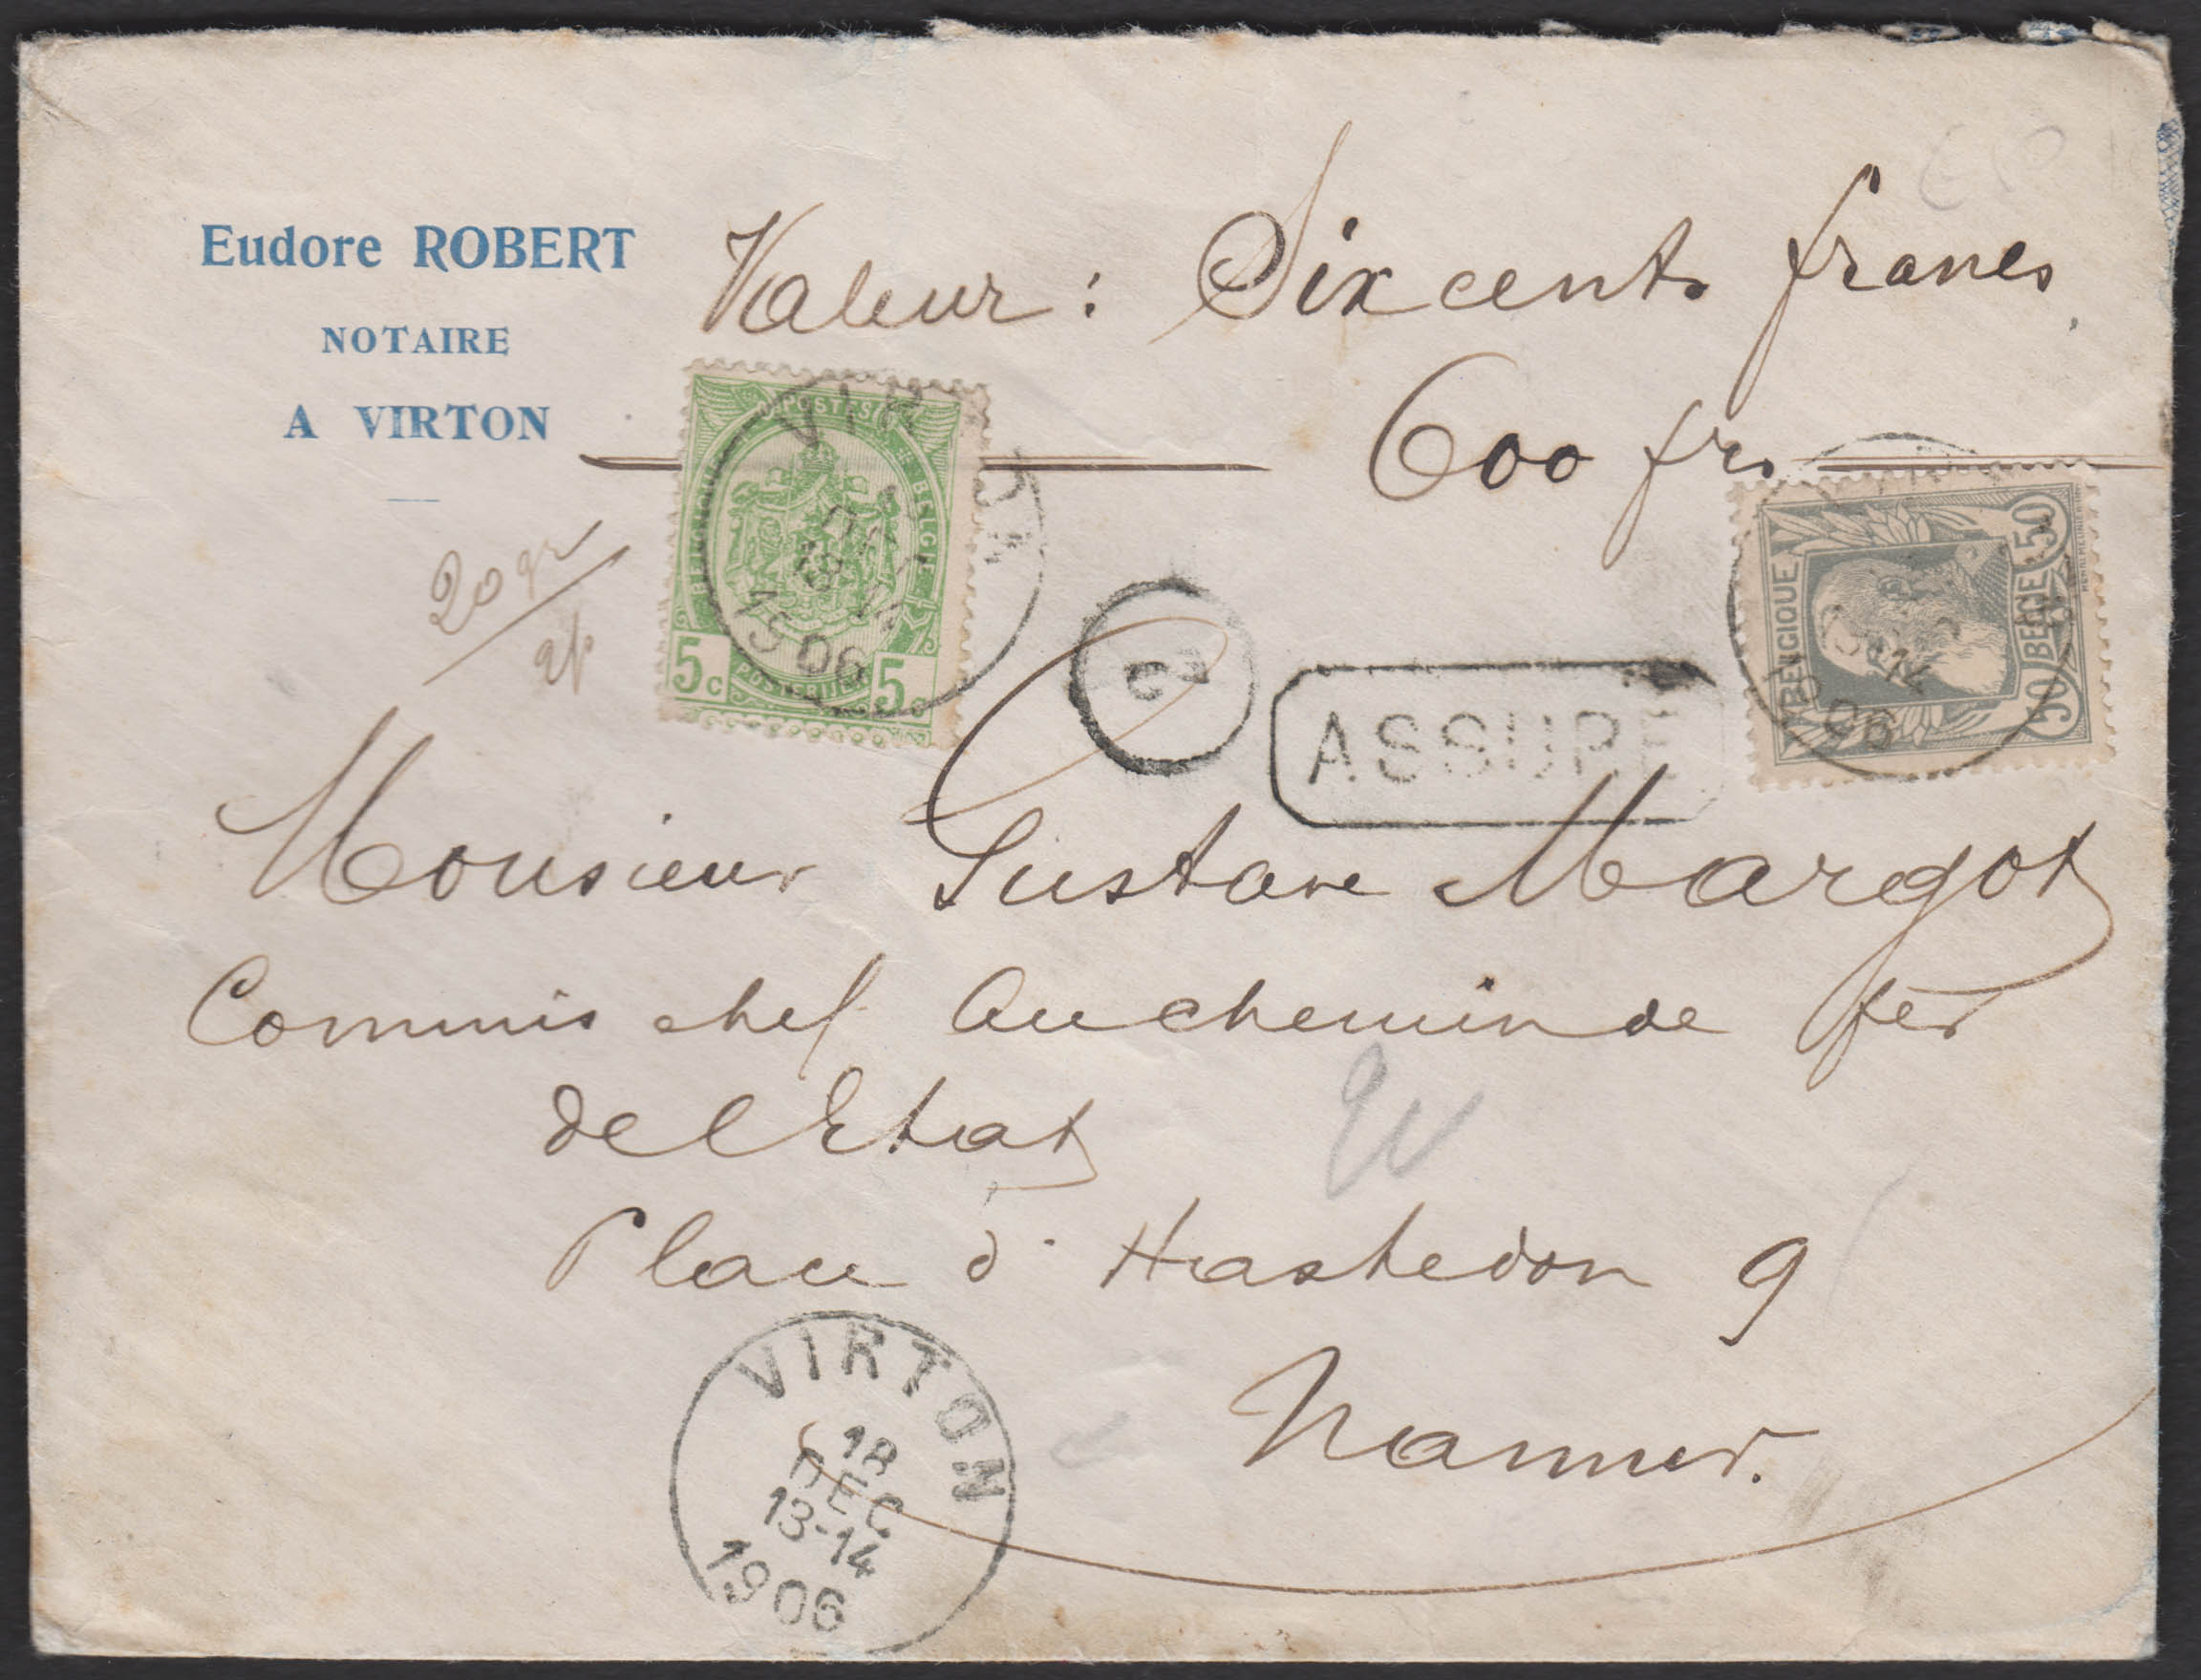 Eudore ROBERT
NOTAIRE
A VIRTON
Valeur : Six cents francs
600 frs
20 gr
POSTES
BELGIQUE
BELGIË
5c POSTERIJEN 5c
VIRTON
DEC
13-14
1906
BELGIQUE
50 BELGIË 50
06
ASSURÉ
Monsieur Gustave Margot
Commis chef au chemin de fer
de l'Etat
Place d'Hastedon 9
Namur.
VIRTON
18
DEC
13-14
1906